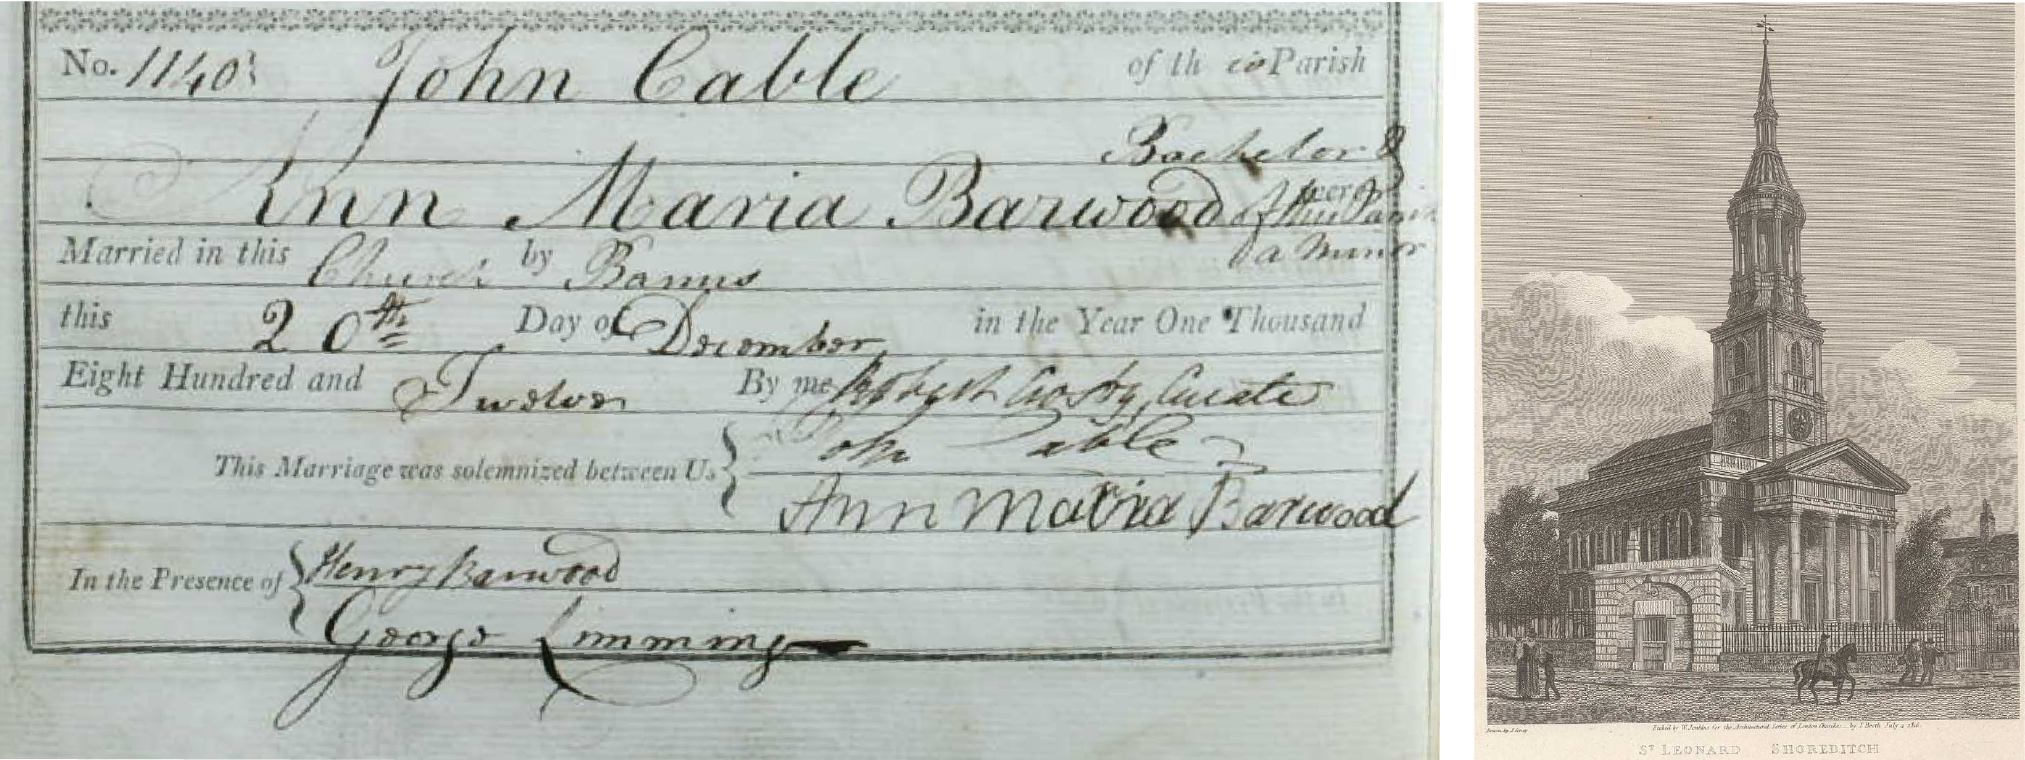 No. 1140 John Cable of th is Parish
Bachelor &
Ann Maria Barwood of this Parish
a Minor
Married in this Church by Banns
this 20th Day of December in the Year One Thousand
Eight Hundred and Twelve By me Crosby, Curate
This Marriage was solemnized between Us John Cable
Ann Maria Barwood
In the Presence of Henry Barwood
George Limming
Etched by W. Jenkins for the Architectural Series of London Churches by J. Booth July 4
ST LEONARD SHOREDITCH